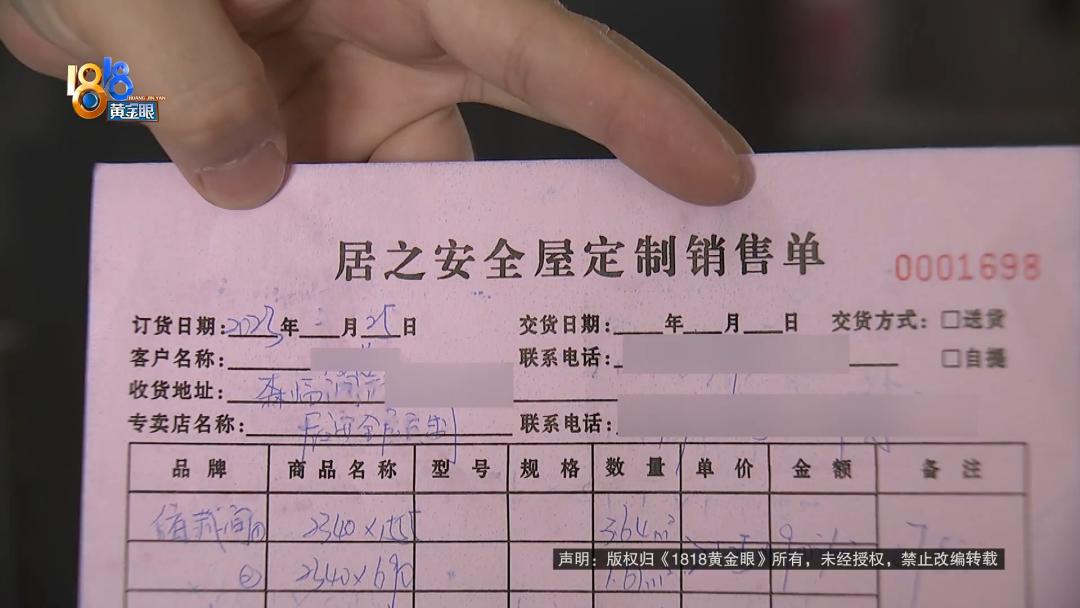 1818
HUANG JIN YAN
黄金眼
居之安全屋定制销售单
0001698
订货日期：2023年 月25日 交货日期：____年___月___日 交货方式：□送货
客户名称： 联系电话： □自提
收货地址：森临
专卖店名称： 联系电话：
品牌 商品名称 型号 规格 数量 单价 金额 备注
储藏间① 2340×1555 3.64m²
② 2340×690 1.61m²
声明：版权归《1818黄金眼》所有，未经授权，禁止改编转载